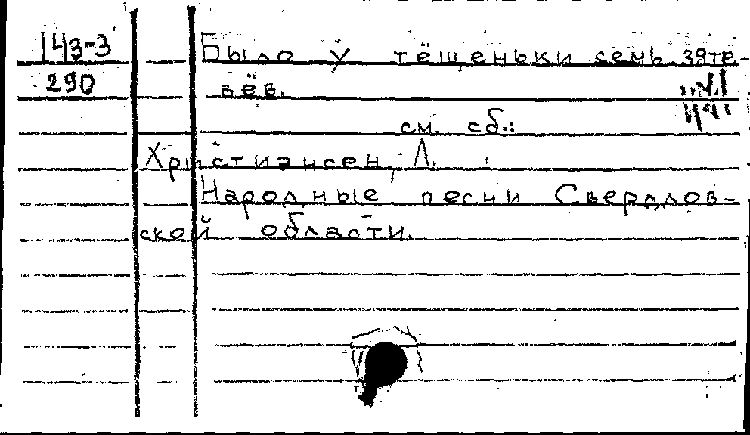 Ц43-3 Было у тёщеньки семь зяте-
290 вёв.
см. сб.:
Христиансен, Л.
Народные песни Свердлов-
ской области.